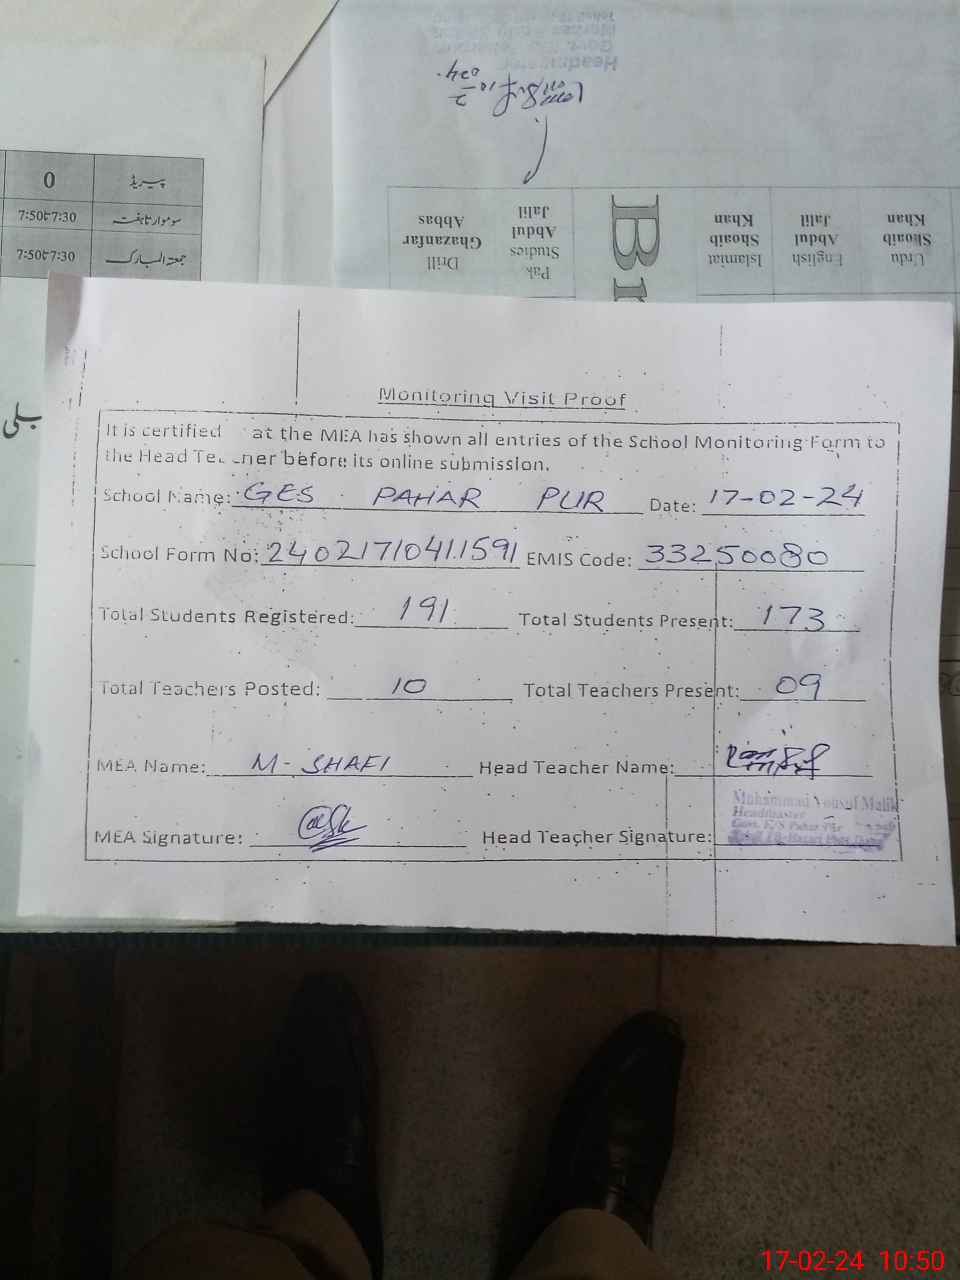 Headmaster
0
پیریڈ
7:50 تا 7:30
سوموار تا ہفتہ
7:50 تا 7:30
جمعۃ المبارک
Drill
Ghazanfar
Abbas
Pak
Studies
Abdul
Jalil
Islamiat
Shoaib
Khan
English
Abdul
Jalil
Urdu
Shoaib
Khan
Monitoring Visit Proof
It is certified at the MEA has shown all entries of the School Monitoring Form to
the Head Teacher before its online submission.
School Name: GES PAHAR PUR Date: 17-02-24
School Form No: 2402171041591 EMIS Code: 33250080
Total Students Registered: 191 Total Students Present: 173
Total Teachers Posted: 10 Total Teachers Present: 09
MEA Name: M- SHAFI Head Teacher Name:
MEA Signature: Head Teacher Signature:
Muhammad Yousaf Malik
Headmaster
Govt. E/S Pahar Pur
17-02-24 10:50